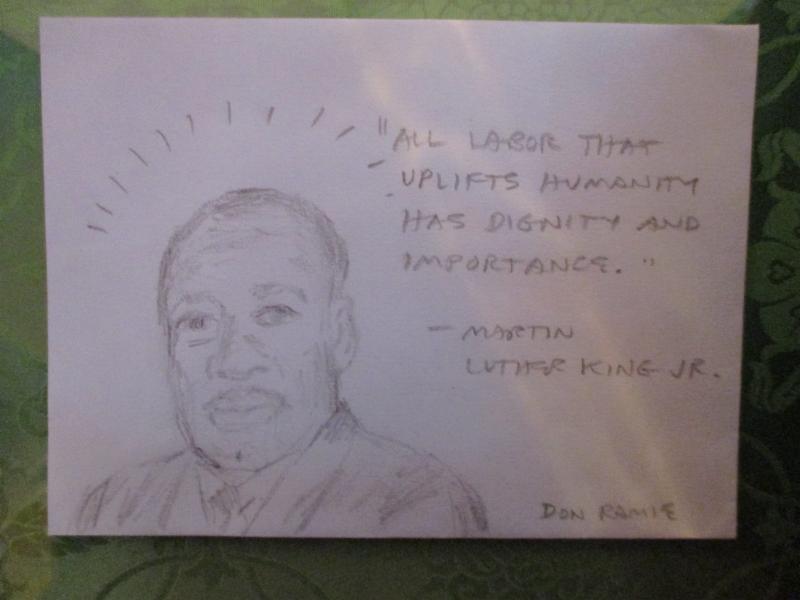 "ALL LABOR THAT
UPLIFTS HUMANITY
HAS DIGNITY AND
IMPORTANCE."
- MARTIN
LUTHER KING JR.
DON RAMIE